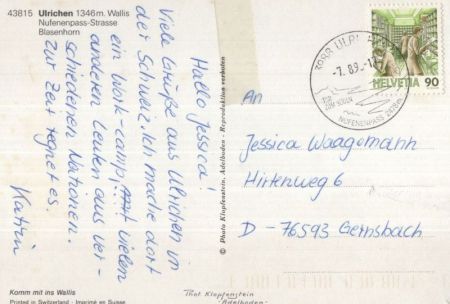 43815 Ulrichen 1346 m. Wallis
Nufenenpass-Strasse
Blasenhorn
Hallo Jessica!
Viele Grüße aus Ulrichen in
der Schweiz. Ich mache dort
ein Work-camp mit vielen
anderen Leuten aus ver-
schiedenen Nationen.
Zur Zeit regnet es.
Katrin
Komm mit ins Wallis
Printed in Switzerland - Imprimé en Suisse
© Photo Klopfenstein, Adelboden - Reproduktion verboten
Phot. Klopfenstein
Adelboden
HELVETIA 90
NUFENENPASS 2478m
An
Jessica Waagemann
Hirtenweg 6
D - 76593 Gernsbach